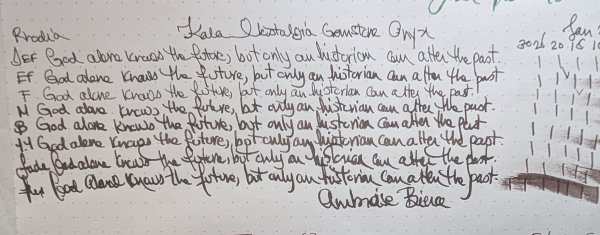 Rhodia Kala Nostalgia Gemstone Onyx
DEF God alone knows the future, but only an historian can alter the past.
EF God alone knows the future, but only an historian can alter the past
F God alone knows the future, but only an historian can alter the past.
M God alone knows the future, but only an historian can alter the past.
B God alone knows the future, but only an historian can alter the past
God alone knows the future, but only an historian can alter the past.
Fude God alone knows the future, but only an historian can alter the past.
God alone knows the future, but only an historian can alter the past.
Ambroise Bierce
30 26 20 15 10